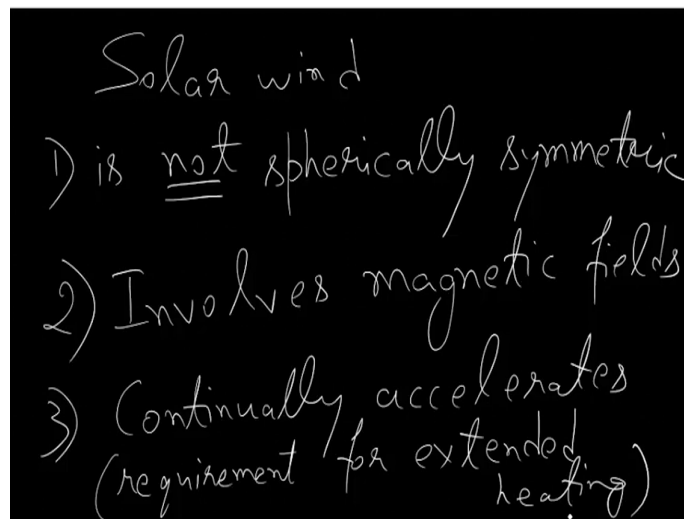 Solar wind
1) is not spherically symmetric
2) Involves magnetic fields
3) Continually accelerates
(requirement for extended
heating)